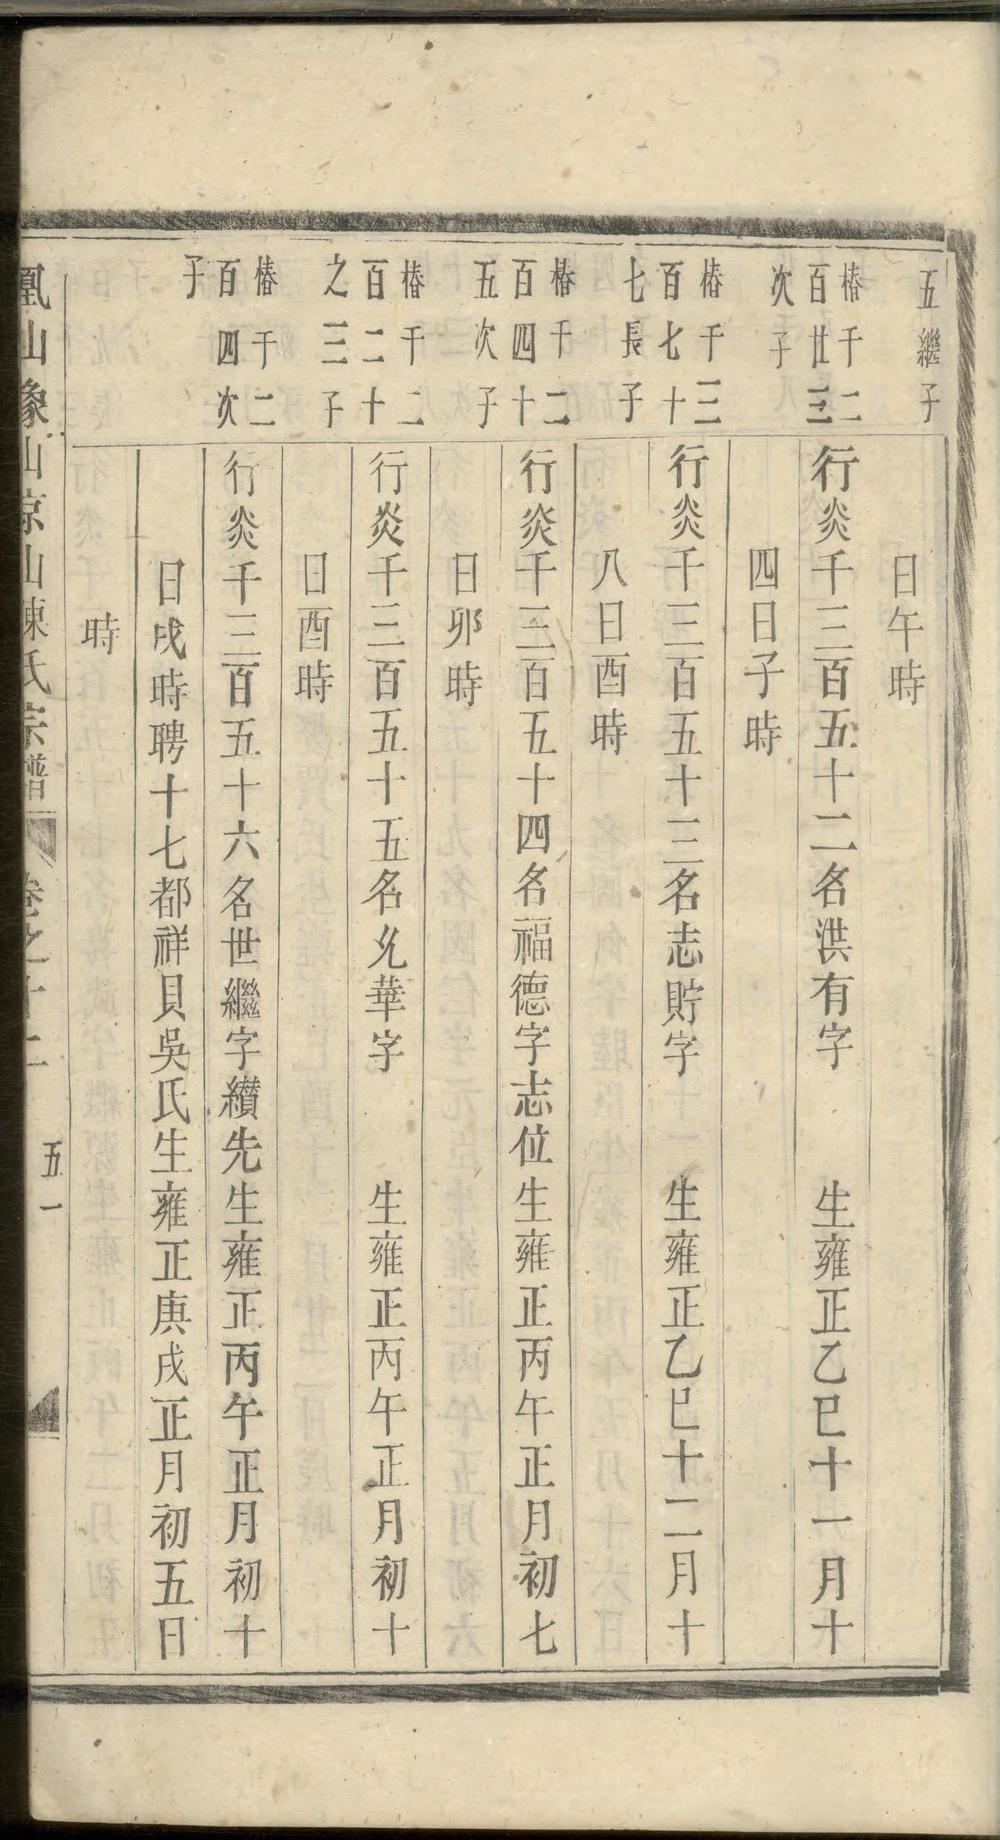 五繼子
日午時
椿千二
百廿三
次子
行炎千三百五十二名洪有字　生雍正乙巳十一月十
四日子時
椿千三
百七十
七長子
行炎千三百五十三名志貯字　生雍正乙巳十二月十
八日酉時
椿千二
百四十
五次子
行炎千三百五十四名福德字志位生雍正丙午正月初七
日卯時
椿千二
百二十
之三子
行炎千三百五十五名允華字　生雍正丙午正月初十
日酉時
椿千二
百四次
子
行炎千三百五十六名世繼字纘先生雍正丙午正月初十
日戌時聘十七都祥貝吳氏生雍正庚戌正月初五日
時
鳳山像山京山陳氏宗譜
卷之十二
五一